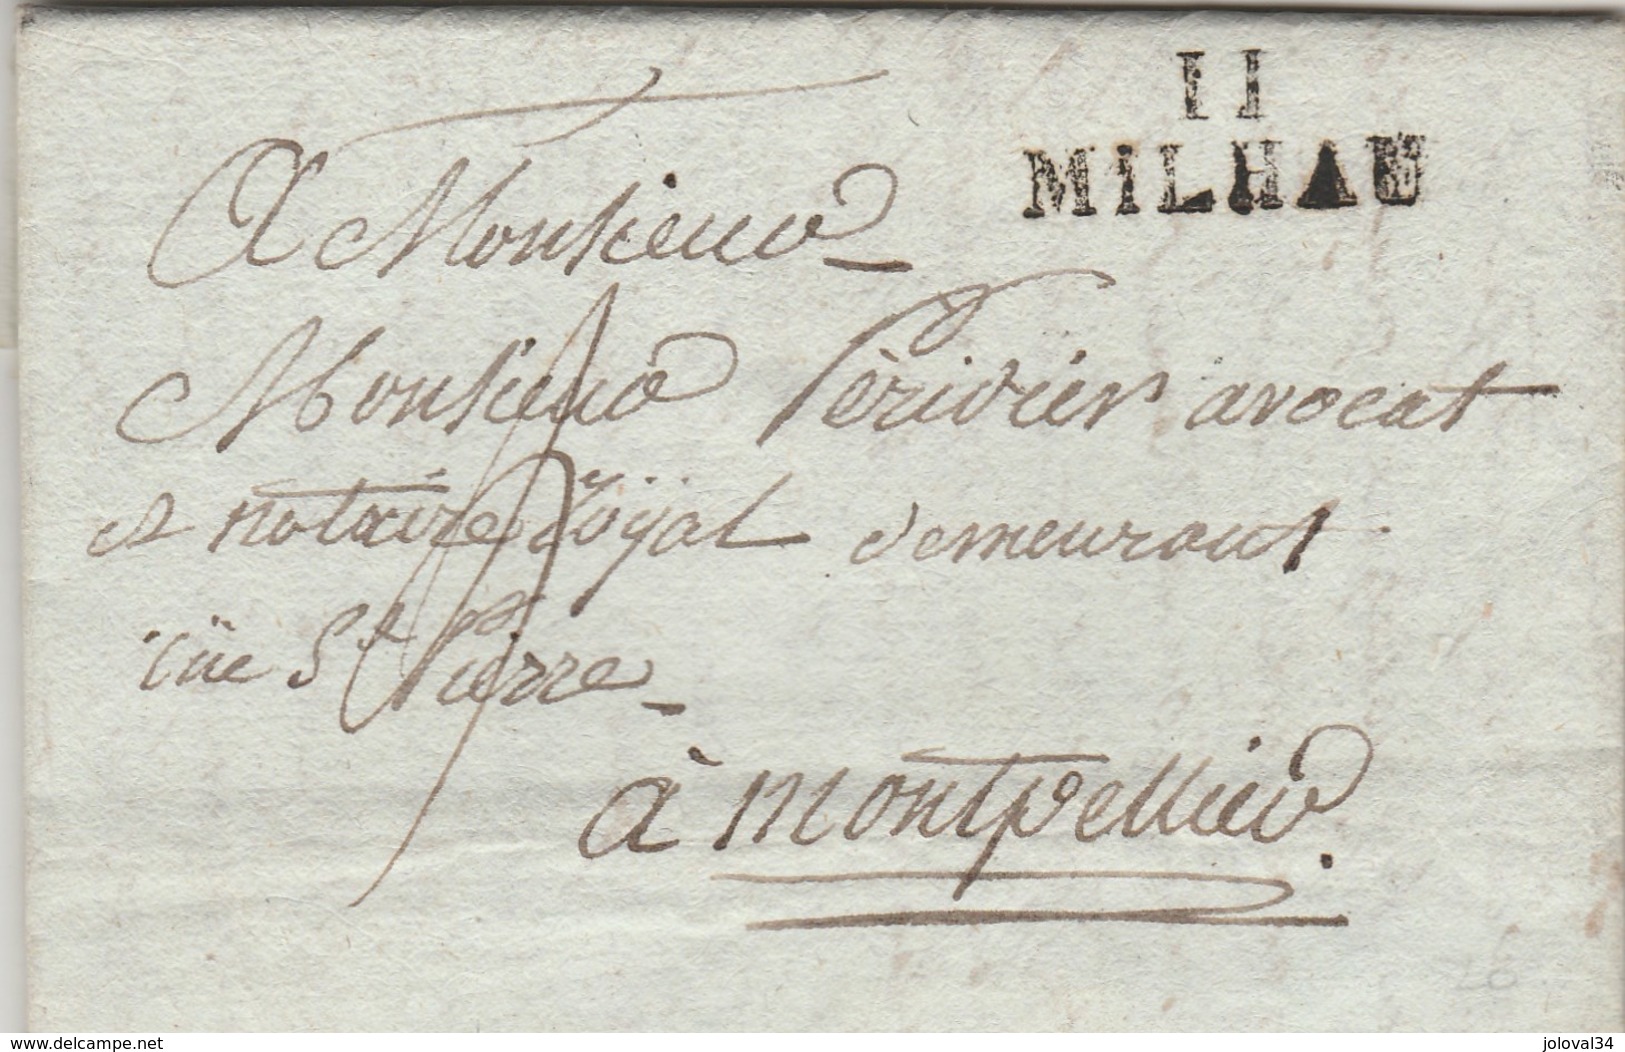 11
MILHAU
A Monsieur
Monsieur Périvier avocat
et notaire royal demeurant
rüe St Pierre
à montpellier.
26
www.delcampe.net
joloval34